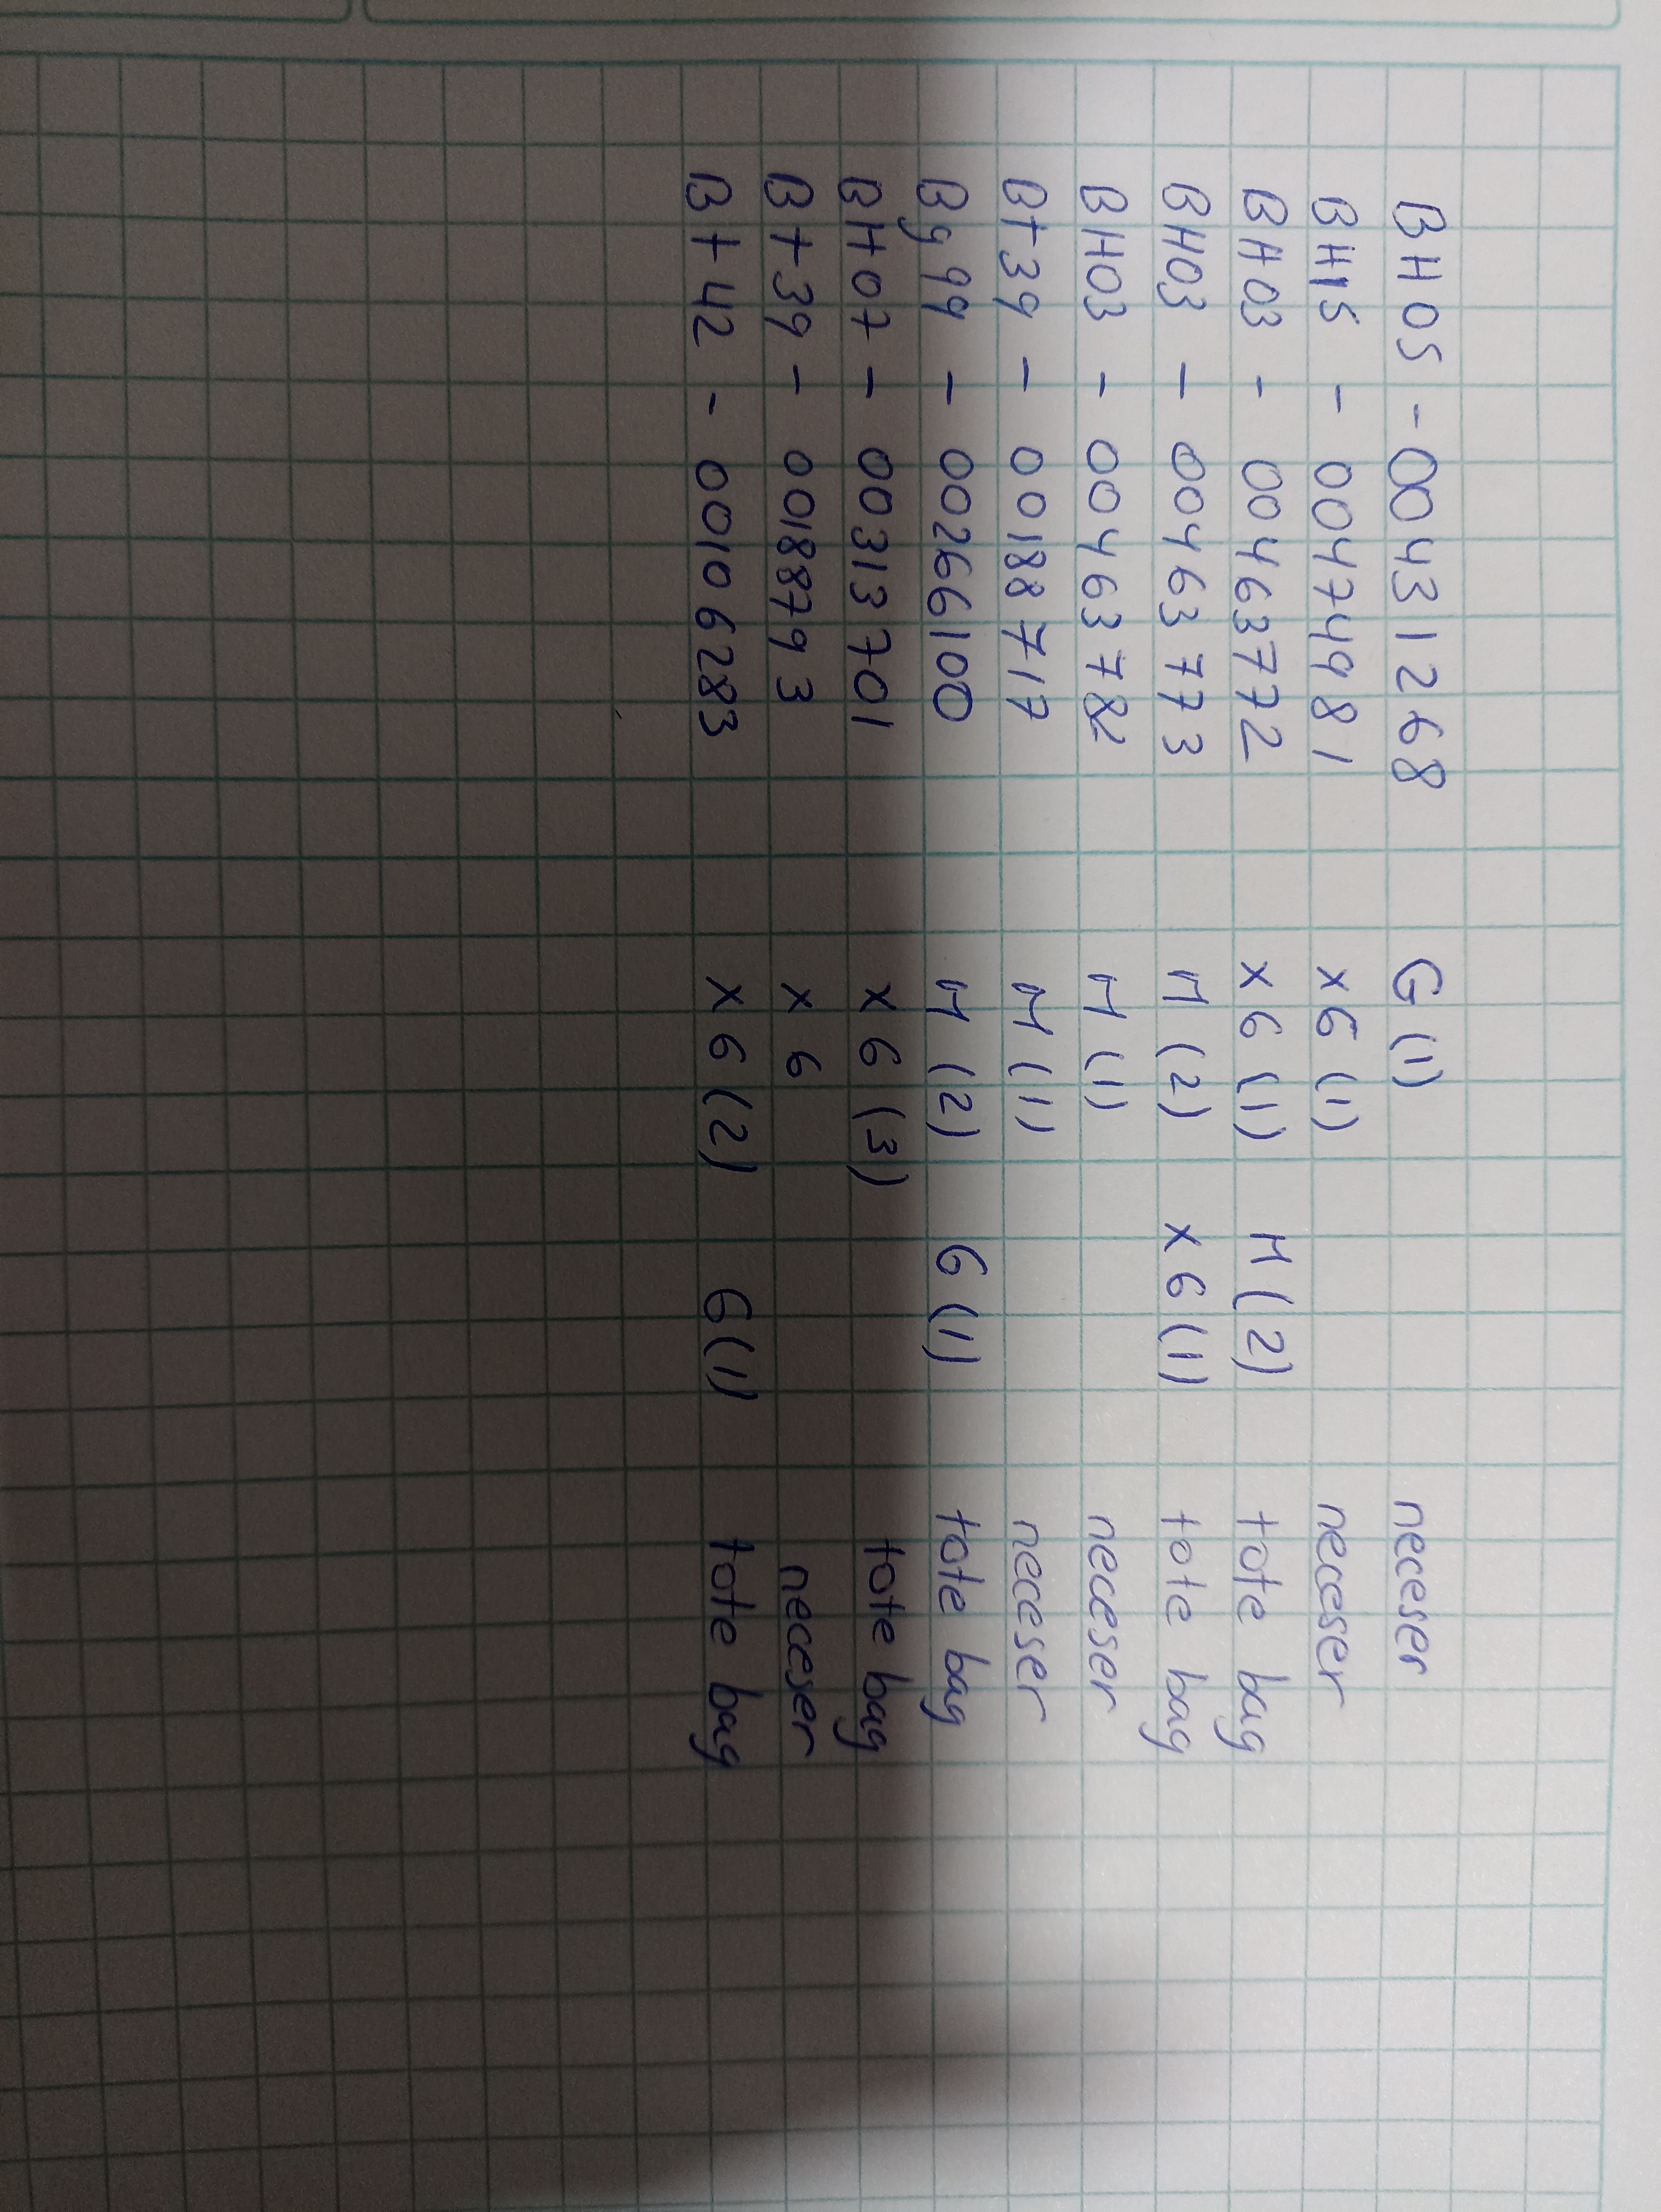 BH05 - 00431268 G (1) neceser
BH15 - 00474981 XG (1) neceser
BH03 - 00463772 XG (1) M (2) tote bag
BH03 - 00463773 M (2) XG (1) tote bag
BH03 - 00463782 M (1) neceser
Bt39 - 00188717 M (1) neceser
By99 - 00266100 M (2) G (1) tote bag
BH07 - 00313701 XG (3) tote bag
Bt39 - 00188793 XG neceser
Bt42 - 00106283 XG (2) G (1) tote bag